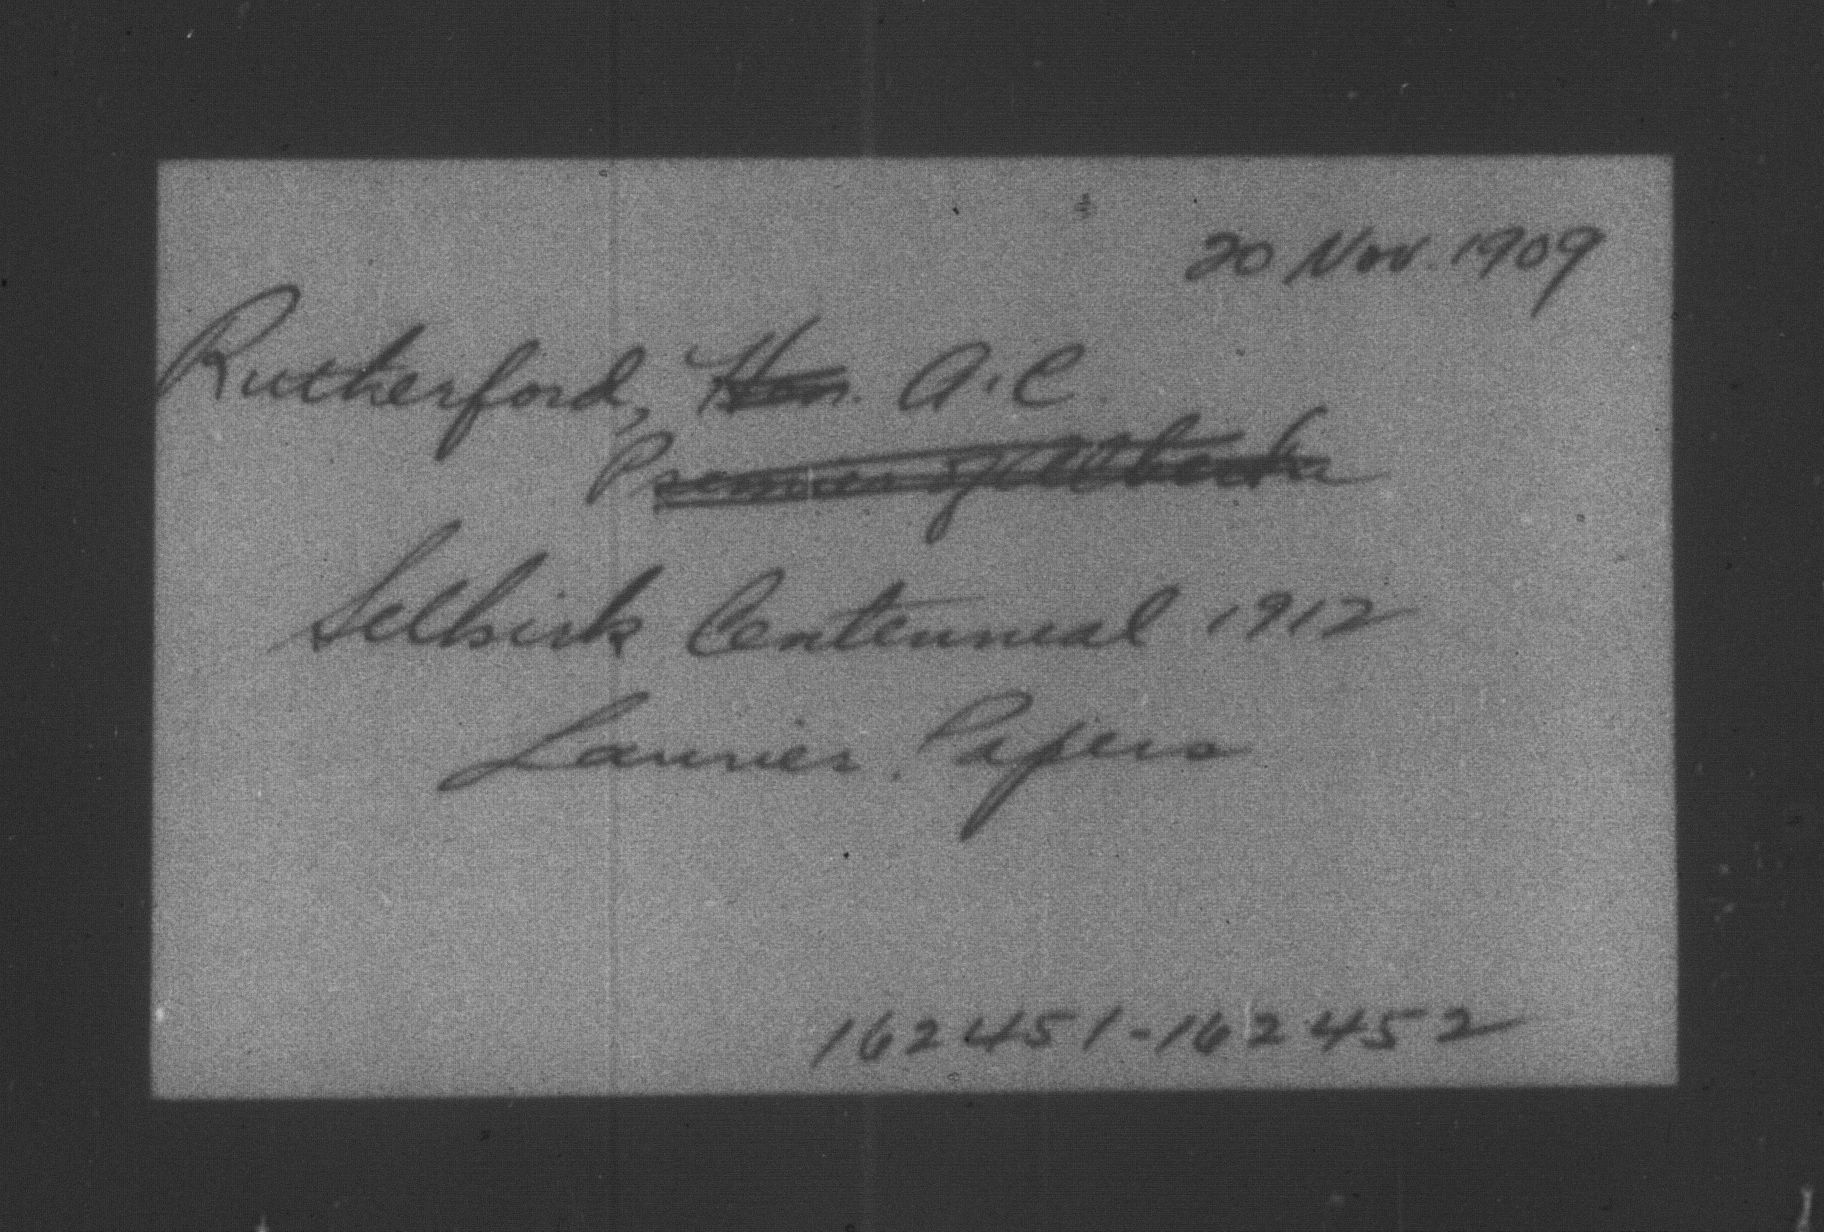 20 Nov. 1909
Rutherford, Hon. A.C.
Premier of Alberta
Selkirk Centennial 1912
Laurier Papers
162451-162452